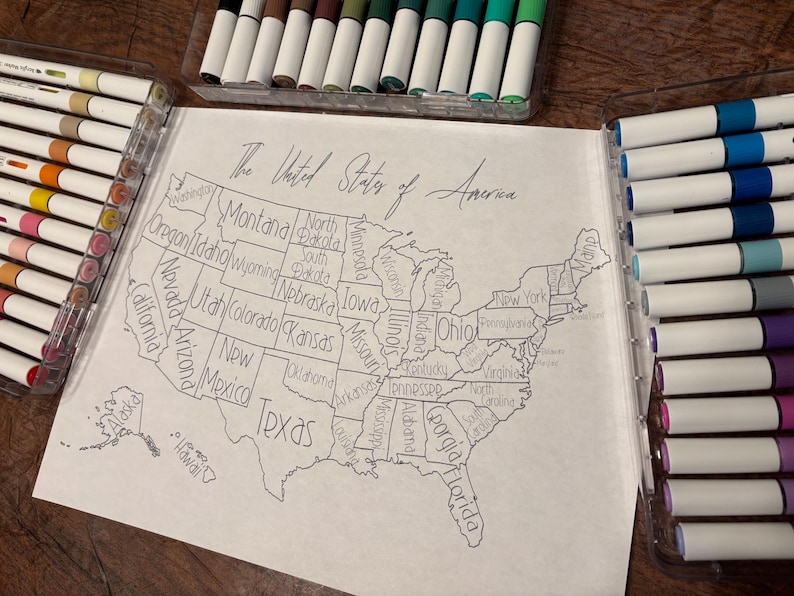 Acrylic Marker
The United States of America
Washington
Montana
North
Dakota
Minnesota
Oregon
Idaho
Wyoming
South
Dakota
Wisconsin
Michigan
Maine
New York
Nevada
Utah
Colorado
Nebraska
Iowa
Illinois
Indiana
Ohio
Pennsylvania
Rhode Island
California
Kansas
Missouri
Kentucky
West
Virginia
Virginia
Delaware
Maryland
Arizona
New
Mexico
Oklahoma
Arkansas
Tennessee
North
Carolina
South
Carolina
Texas
Louisiana
Mississippi
Alabama
Georgia
Florida
Alaska
Hawaii